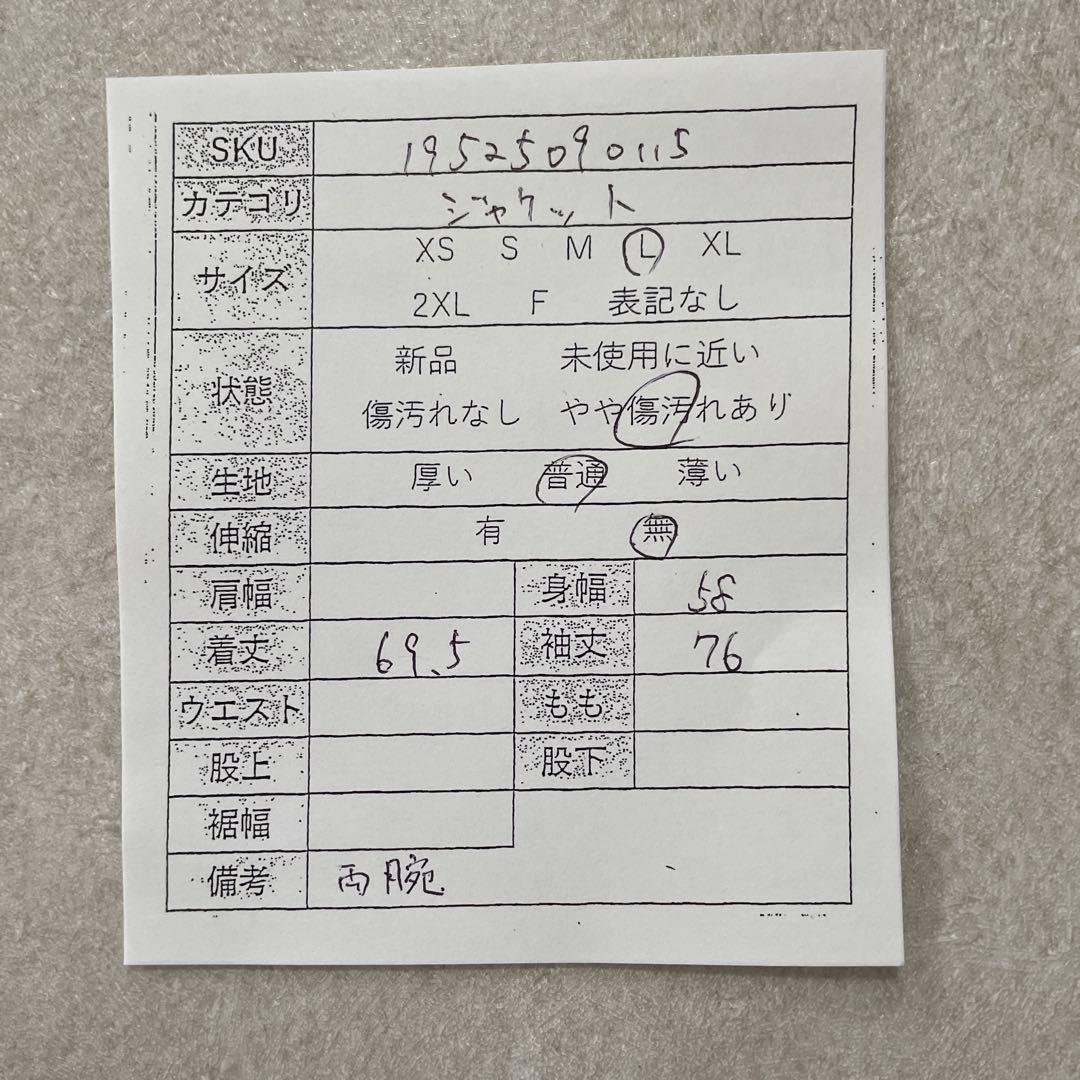 SKU 19525090115
カテゴリ ジャケット
サイズ XS S M L XL
2XL F 表記なし
状態 新品 未使用に近い
傷汚れなし やや傷汚れあり
生地 厚い 普通 薄い
伸縮 有 無
肩幅 身幅 58
着丈 69.5 袖丈 76
ウエスト もも
股上 股下
裾幅
備考 両腕